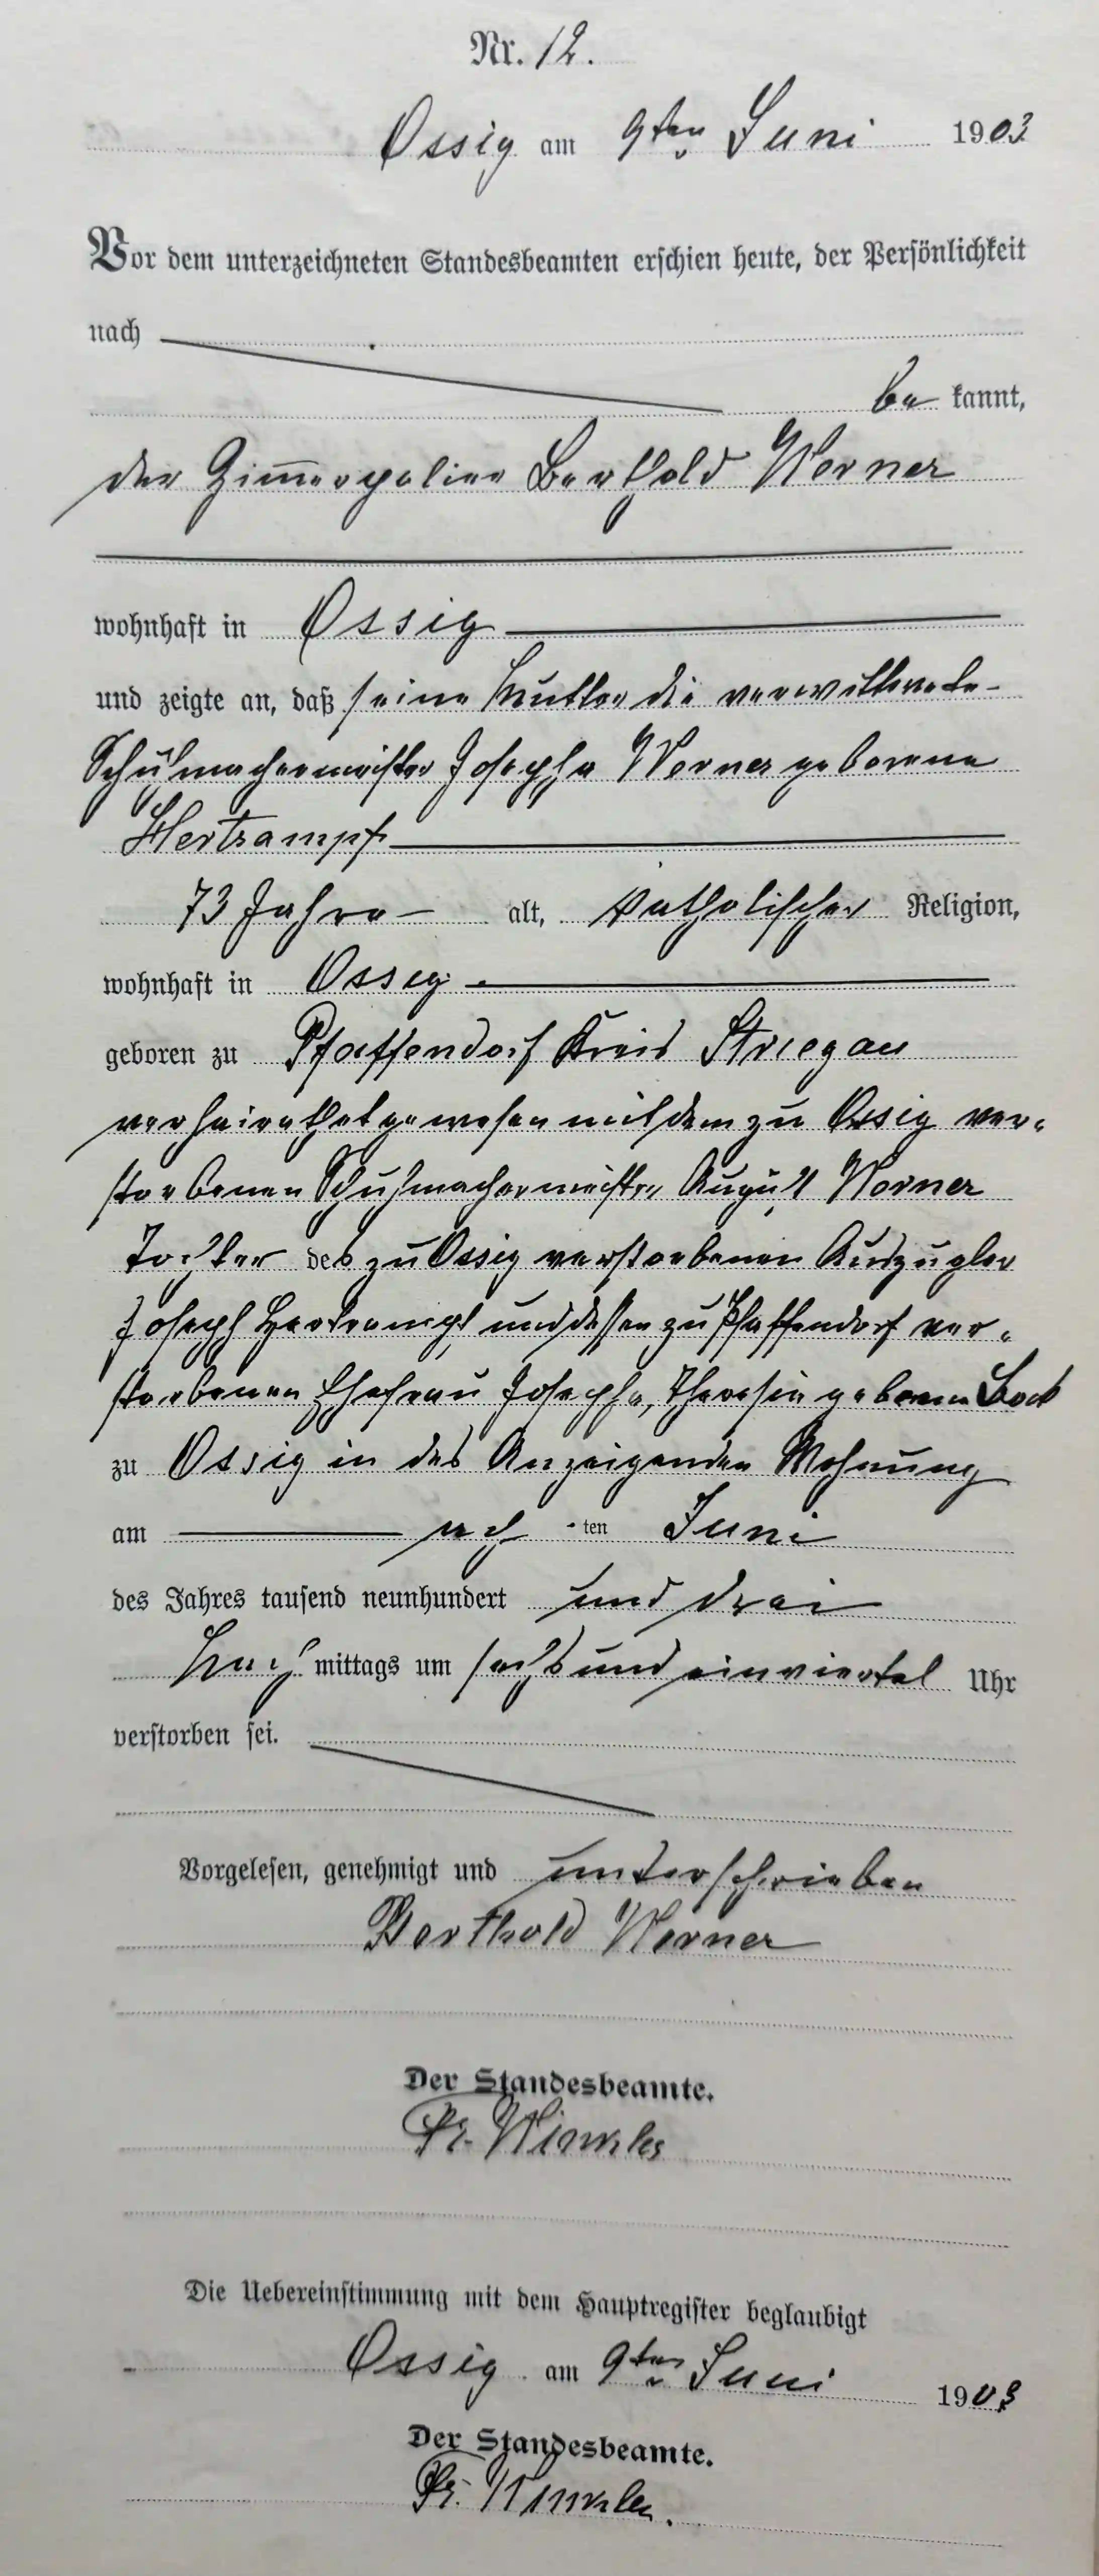 Nr. 12.
Ossig am 9ten Juni 1903
Vor dem unterzeichneten Standesbeamten erschien heute, der Persönlichkeit
nach
be kannt,
der Zimmerpolier Berthold Werner
wohnhaft in Ossig
und zeigte an, daß seine Mutter die verwittwete
Schuhmachermeister Josepha Werner geborene
Hertrampf
73 Jahre alt, katholischer Religion,
wohnhaft in Osseg
geboren zu Pfaffendorf Kreis Striegau
verheirathet gewesen mit dem zu Ossig ver-
storbenen Schuhmachermeister August Werner
Tochter des zu Ossig verstorbenen Auszügler
Joseph Hertrampf und dessen zu Pfaffendorf ver-
storbenen Ehefrau Josepha, Theresia geborene
zu Ossig in des Anzeigenden Wohnung
am acht ten Juni
des Jahres tausend neunhundert und drei
Nach mittags um sechs und einviertel Uhr
verstorben sei.
Vorgelesen, genehmigt und unterschrieben
Berthold Werner
Der Standesbeamte.
Fr. Winkler
Die Uebereinstimmung mit dem Hauptregister beglaubigt
Ossig am 9ten Juni 1903
Der Standesbeamte.
Fr. Winkler.